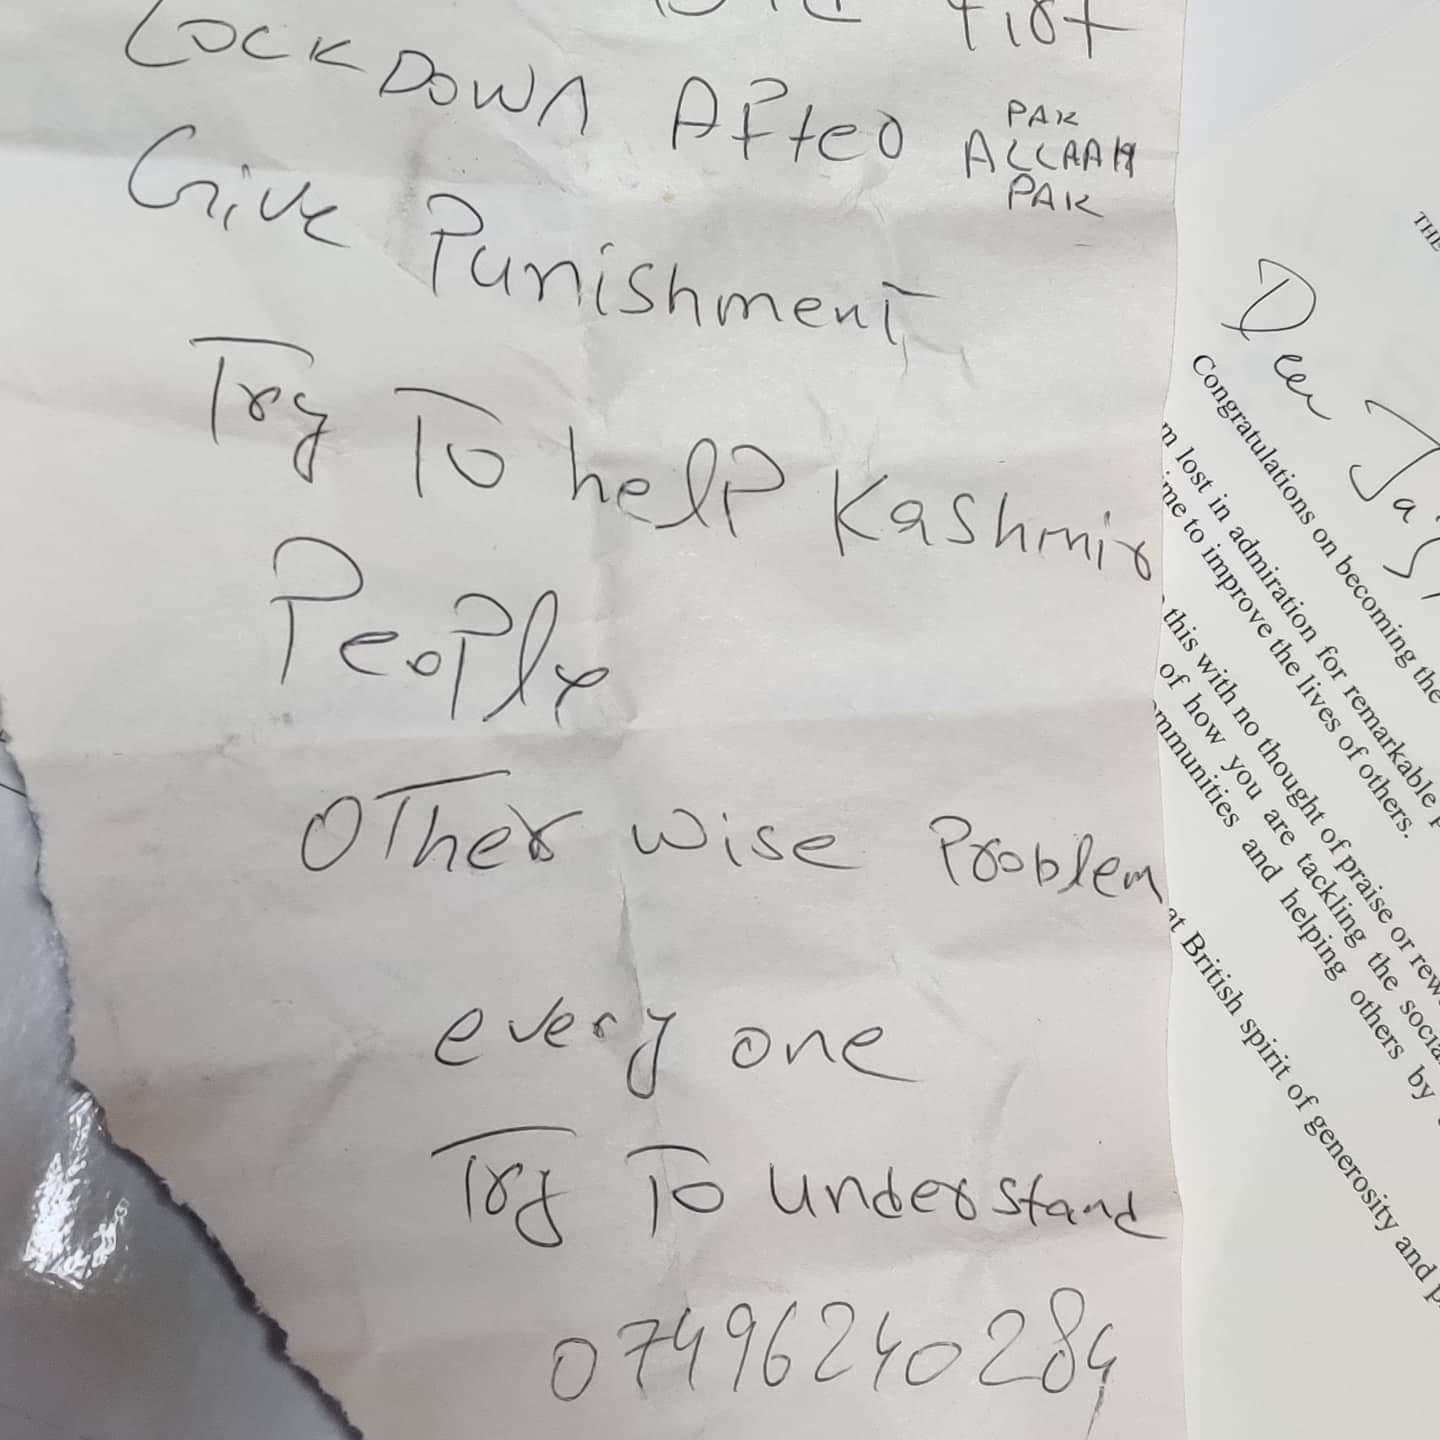 First
LOCKDOWN After PAK
ALLAAH
PAK
Give Punishment
Try To help Kashmir
People
Other wise Problem
every one
Try To understand
07496240284
THE
Dear
Congratulations on becoming the
m lost in admiration for remarkable p
ime to improve the lives of others.
this with no thought of praise or rew
of how you are tackling the social
mmunities and helping others by
at British spirit of generosity and p